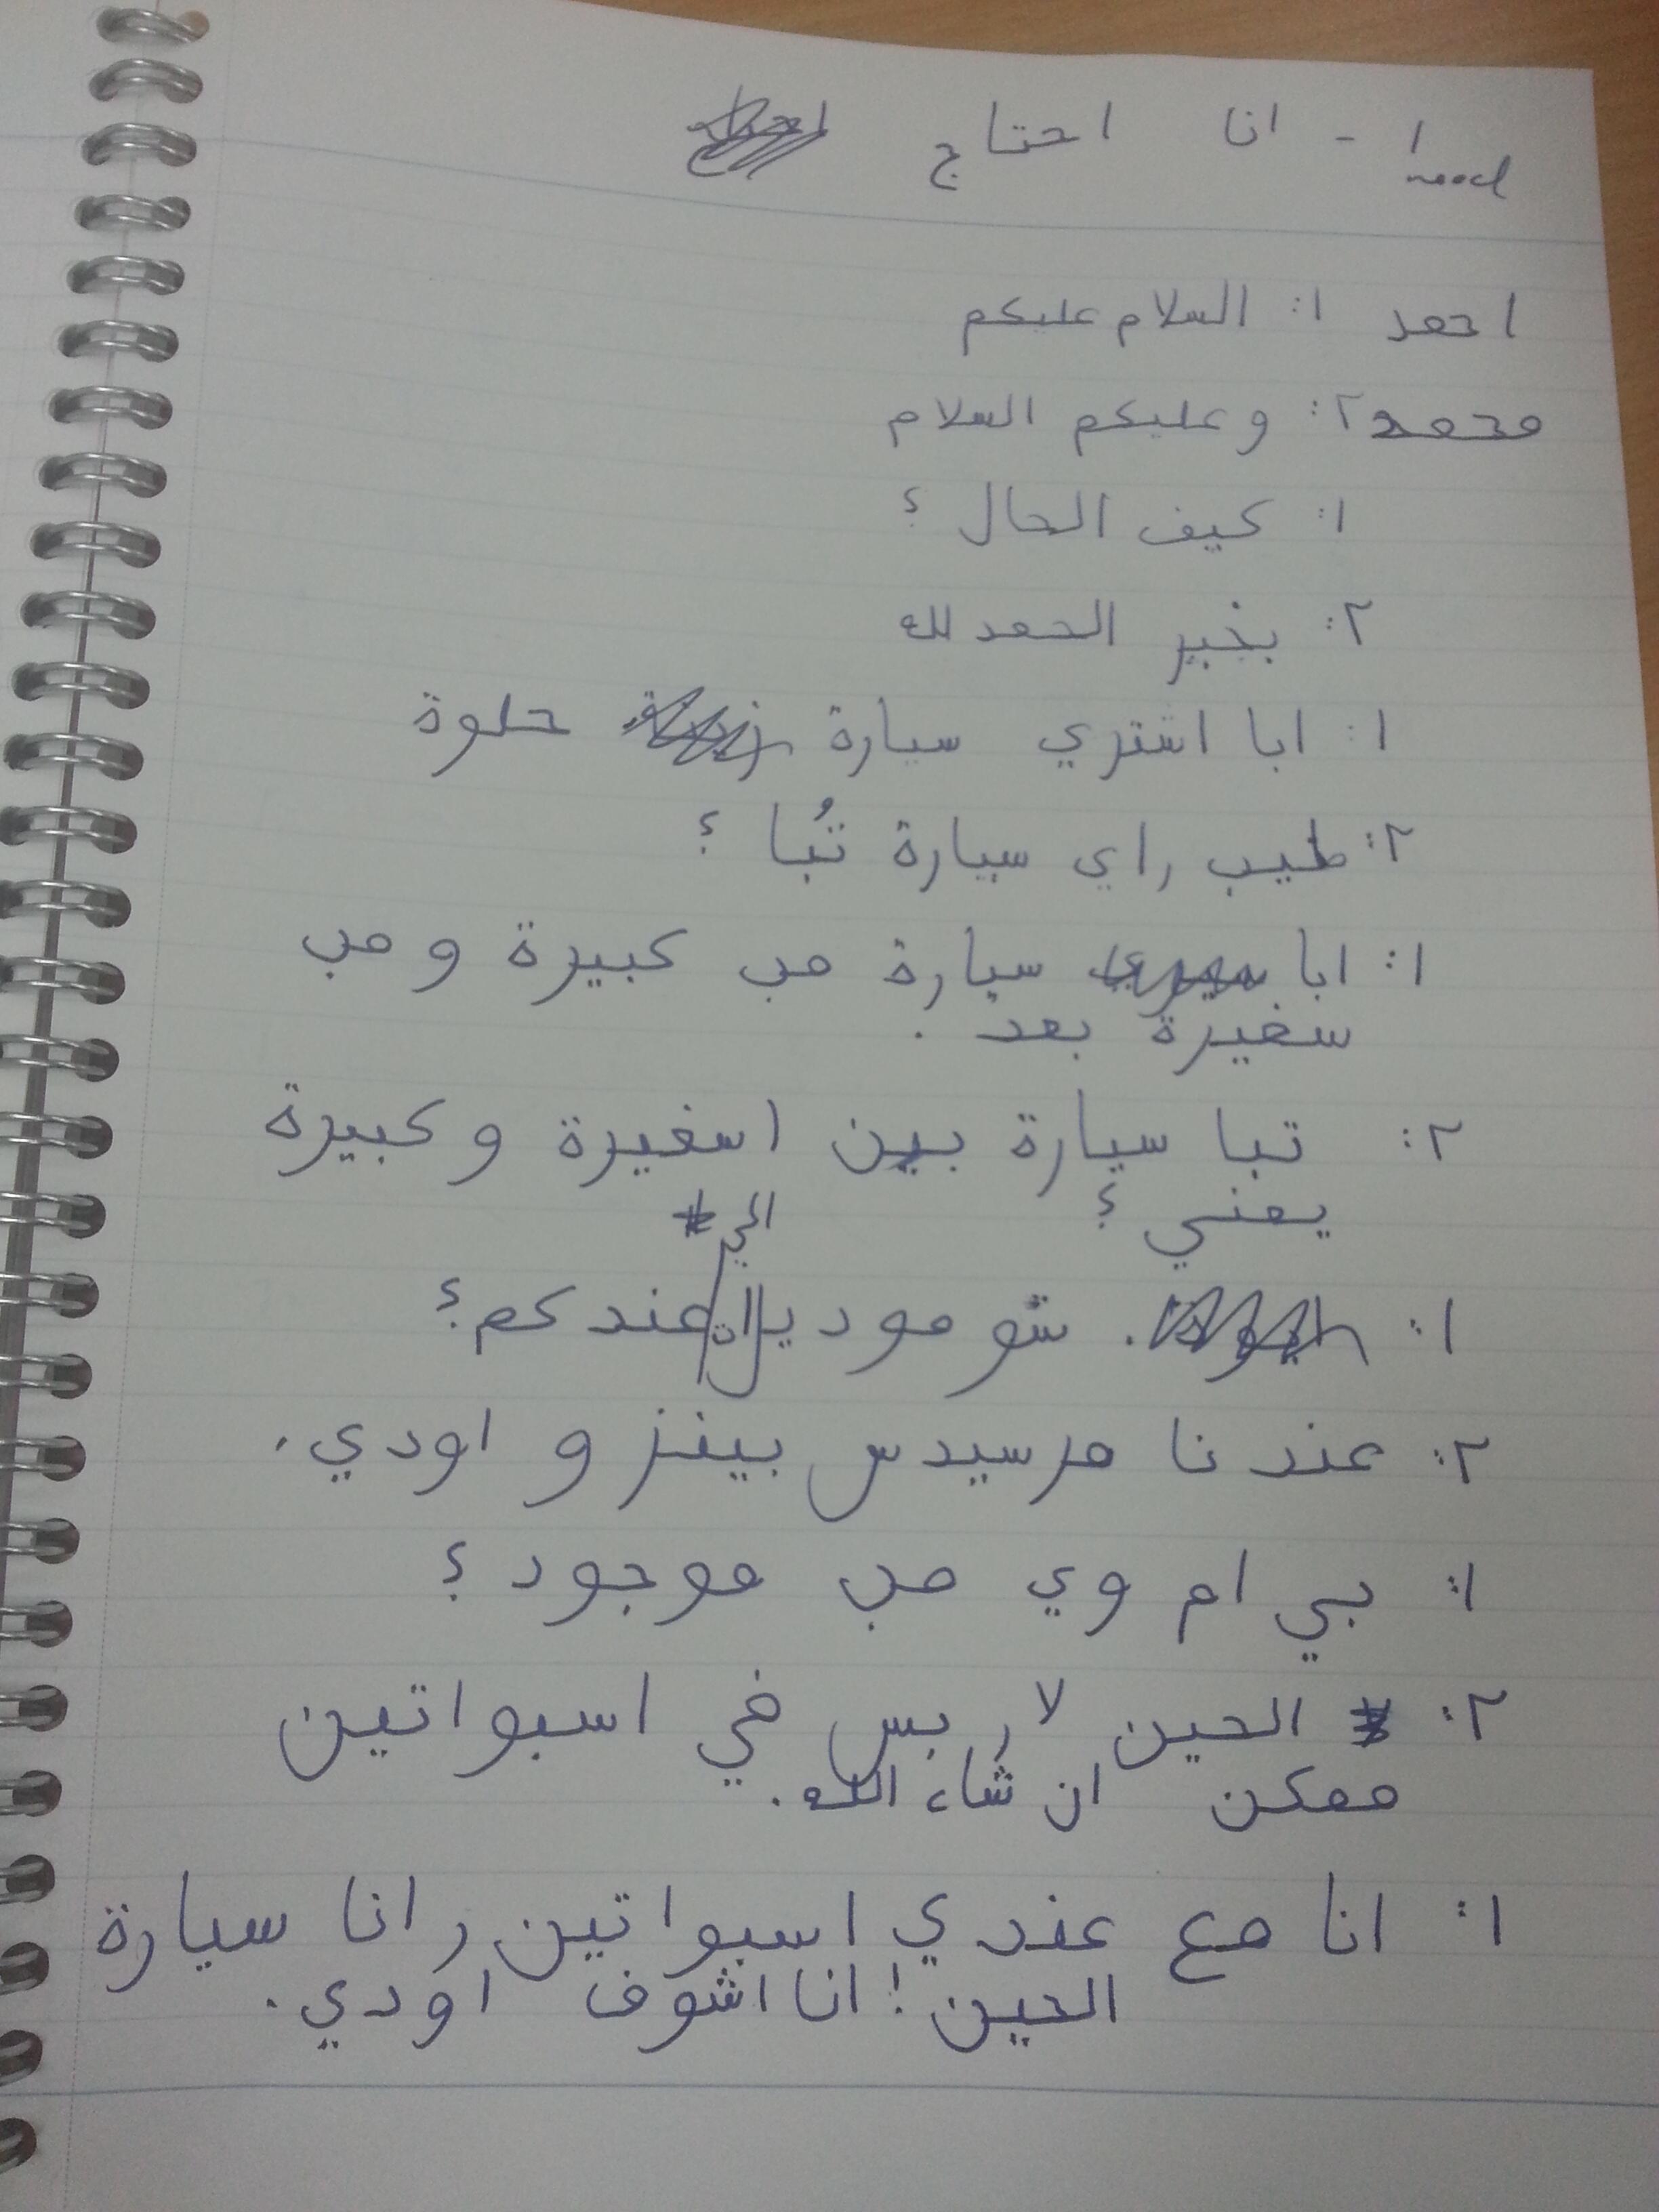 ١ - انا احتاج
need
احمد ١: السلام عليكم
محمد ٢: و عليكم السلام
١: كيف الحال ؟
٢: بخير الحمد لله
١: ابا اشتري سيارة حلوة
٢: طيب، اي سيارة تُبا ؟
١: ابا سيارة مب كبيرة و مب
سغيرة بعد.
٢: تبا سيارة بين اسغيرة و كبيرة
يعني ؟
١: شو موديل الي عندكم؟
٢: عندنا مرسيدس بينز و اودي.
١: بي ام وي مب موجود ؟
٢: الحين لا، بس في اسبواتين
ممكن ان شاء الله.
١: انا مع عندي اسبواتين، انا سيارة
الحين! انا اشوف اودي.